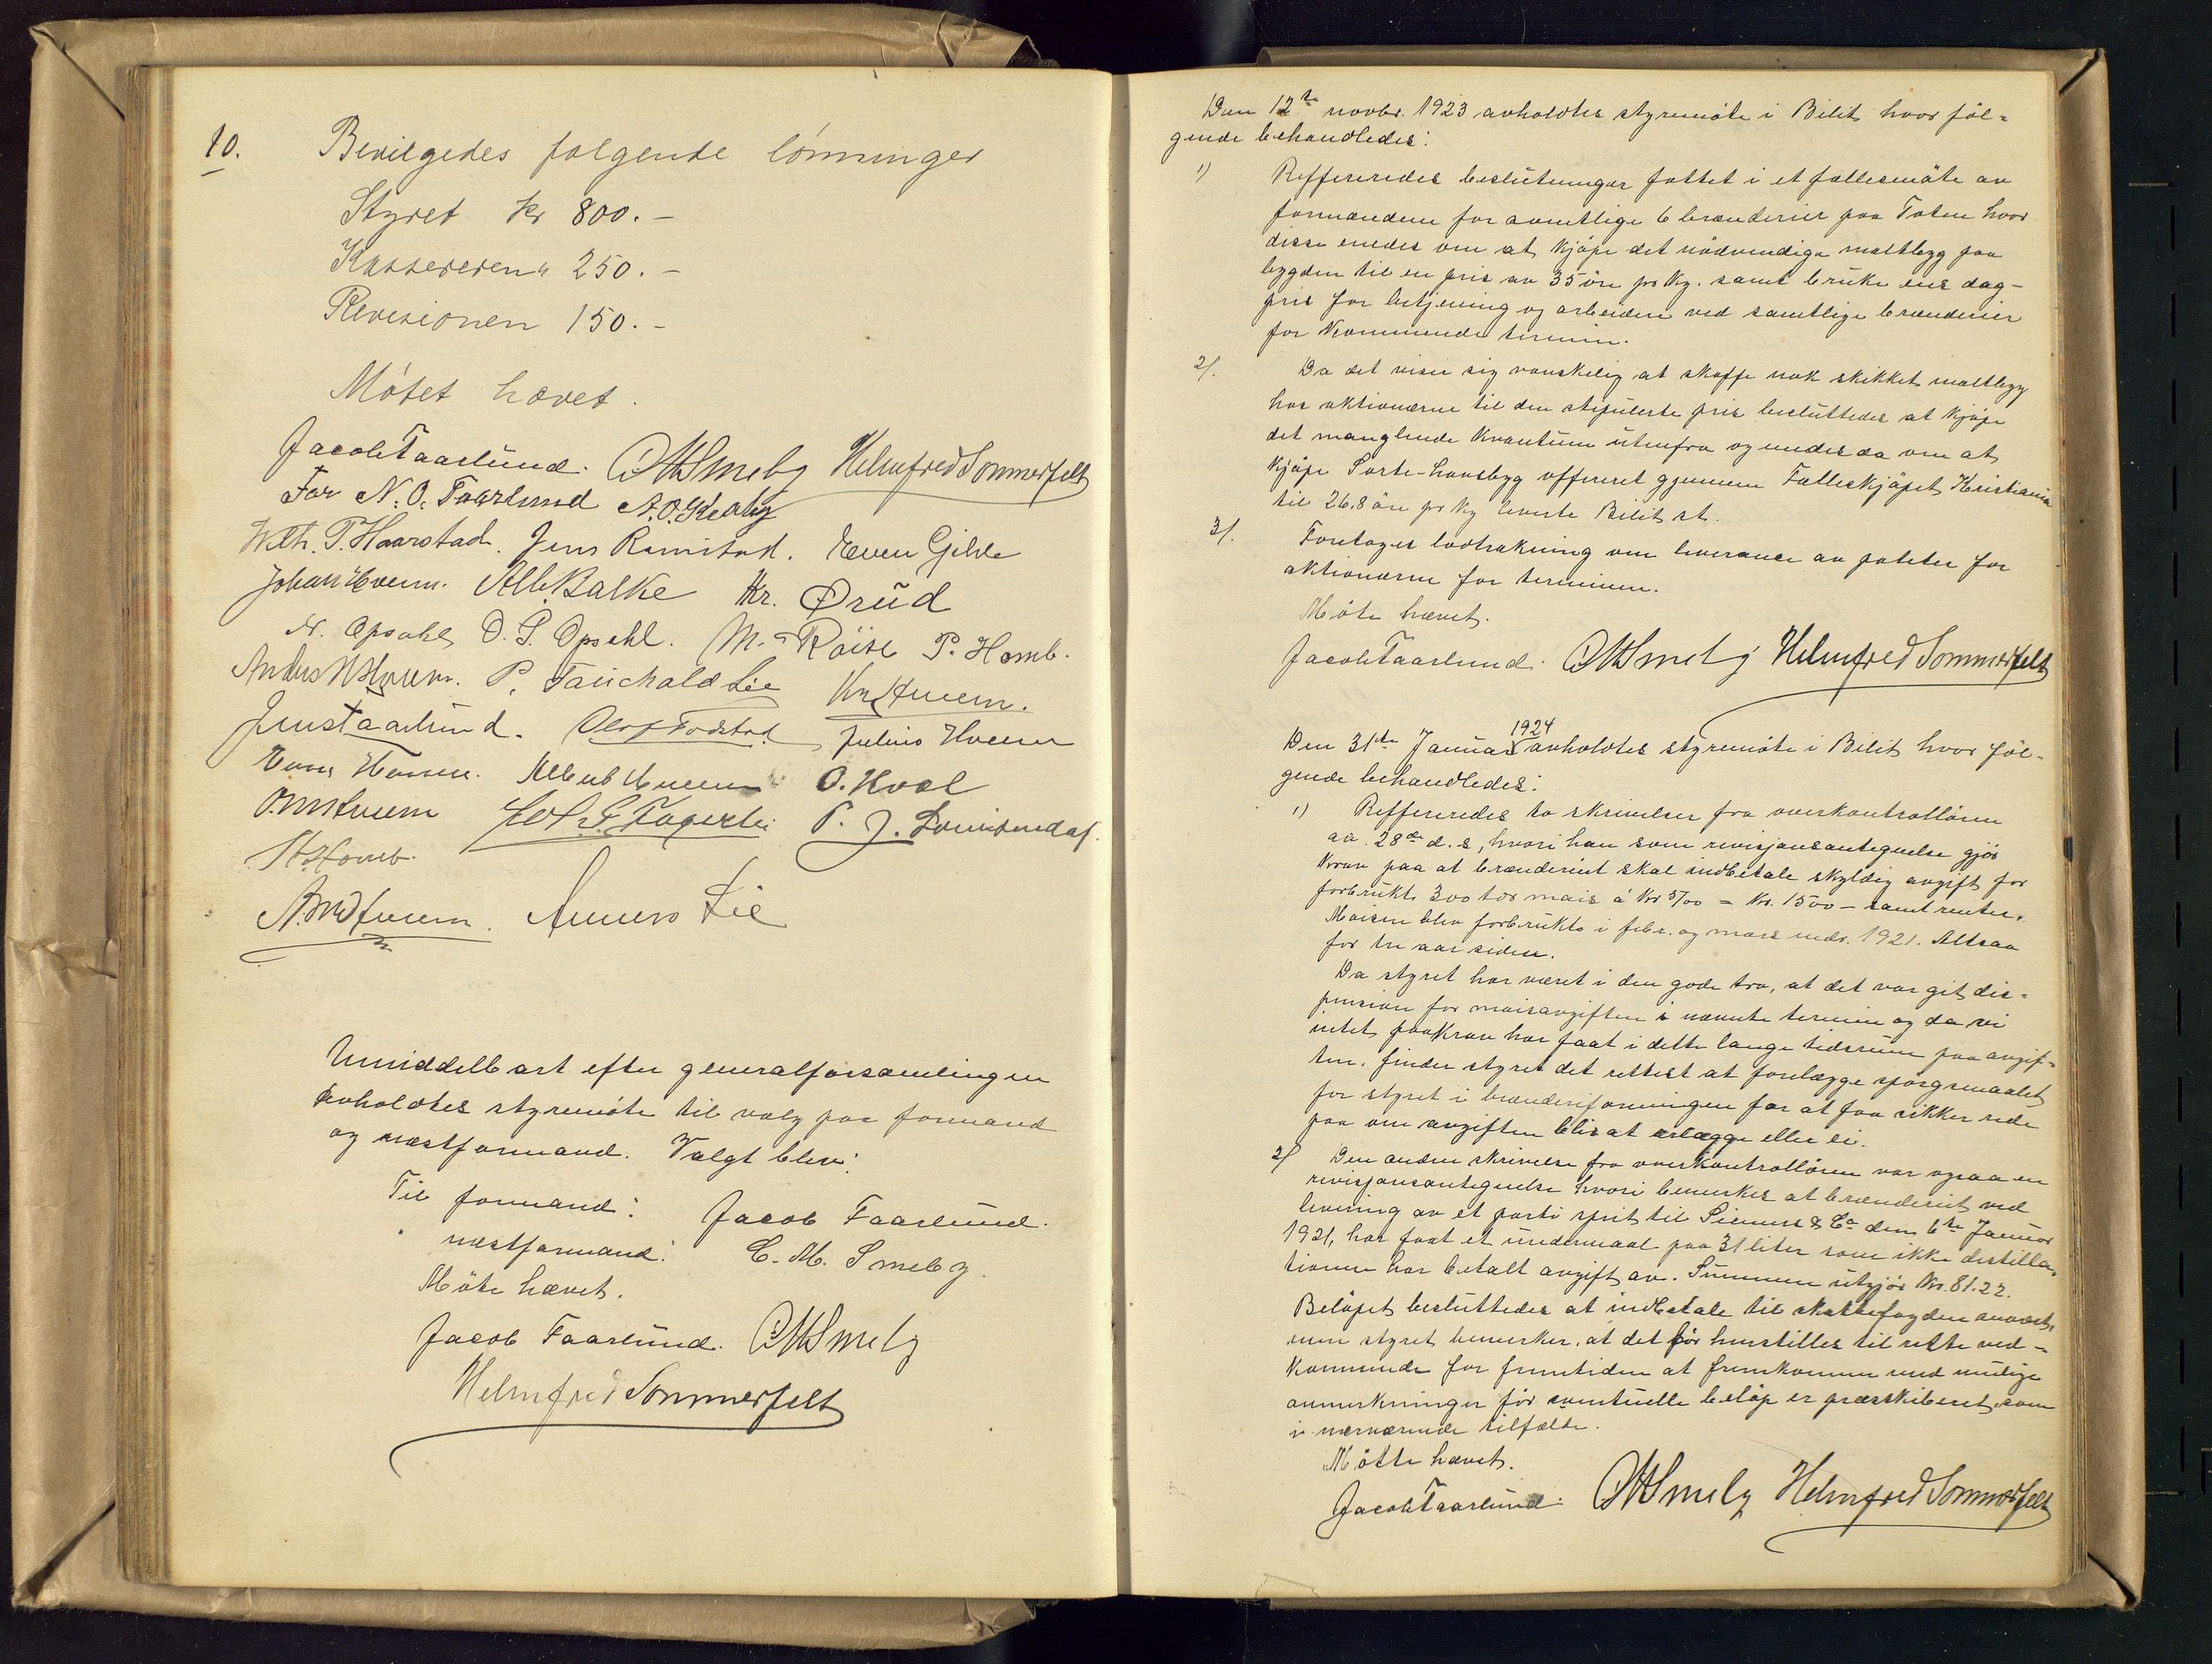 10. Bevilgedes følgende lønninger
Styret Kr 800.-
Kassereren " 250.-
Revisionen 150.-
Møtet hævet.
Jacob Faarlund. C M Smeby Helmfred Sommerfelt
For N. O. Faarlund A. O. Kealy
P. Haarstad. Jens Ramstad. Even Gihle
Johan Hveem. Alb. Balke Kr. Ørud
N. Opsahl O. S. Opsahl. M. Røise P. Homb.
Anders Hveem. P. Fauchald Lie Kr. Hveem.
Jens Faarlund. Olaf Fodstad Julius Hveem
Hans Hveem. Albert Hveem O. Hval
O. M. Hveem P. J.
H. Homb.
A. M. Hveem. Anders Lie
Umiddelbart efter generalforsamlingen
avholdtes styremøte til valg paa formand
og næstformand. Valgt blev:
Til formand: Jacob Faarlund.
næstformand: C. M. Smeby.
Møte hævet.
Jacob Faarlund. C M Smeby
Helmfred Sommerfelt
Den 12te novbr. 1923 avholdtes styremøte i Bilit hvor føl-
gende behandledes:
1) Reffereredes beslutninger fattet i et fællesmøte av
formændene for samtlige 6 brænderier paa Toten hvor
disse enedes om at kjøpe det nødvendige maltbygg paa
bygden til en pris av 35 øre pr kg. samt bruke ens dag-
pris for betjening og arbeidere ved samtlige brænderier
for kommende termin.
2/. Da det viser sig vanskelig at skaffe nok skikket maltbygg
hos aktionærene til den stipulerte pris besluttedes at kjøpe
det manglende kvantum utenfra og enedes da om at
kjøpe Sorte-havsbyg offereret gjennem Fælleskjøpet Kristiania
til 26.8 øre pr kg leverte Bilit st.
3/. Foretages lodtrækning om leverance av poteter for
aktionærene for terminen.
Møte hævet.
Jacob Faarlund. C M Smeby Helmfred Sommerfelt
Den 31te Januar 1924 avholdtes styremøte i Bilit hvor føl-
gende behandledes:
1) Reffereredes to skrivelser fra overkontrolløren
av 28de d.s, hvori han som revisjonsantegnelse gjør
krav paa at brænderiet skal indbetale skyldig avgift for
forbrukt 300 tdr mais á Kr 5/00 = Kr. 1500 - samt renter.
Maisen blev forbrukt i febr. og mars mdr. 1921. Altsaa
for tre aar siden.
Da styret har været i den gode tro, at det var git dis-
pension for maisavgiften i nævnte termin og da vi
intet paakrav har faat i dette lange tidsrum paa avgif-
ten, finder styret det rettest at forelægge spørgsmaalet
for styret i brænderiforeningen for at faa sikker rede
paa om avgiften blir at erlægge eller ei.
2/ Den anden skrivelse fra overkontrolløren var ogsaa en
revisjonsantegnelse hvori bemerkes at brænderiet ved
levering av et parti sprit til Siemers & Co den 6te Januar
1921, har faat et undermaal paa 31 liter som ikke destilla-
tionen har betalt avgift av. Summen utgjør Kr. 81.22.
Beløpet besluttedes at indbetale til skattefogden
men styret bemerker, at det bør henstilles til rette ved-
kommende for fremtiden at fremkomme med mulige
anmerkninger før eventuelle beløp er præskiberet, som
i nærværende tilfælde.
Møtte hævet.
Jacob Faarlund. C M Smeby Helmfred Sommerfelt